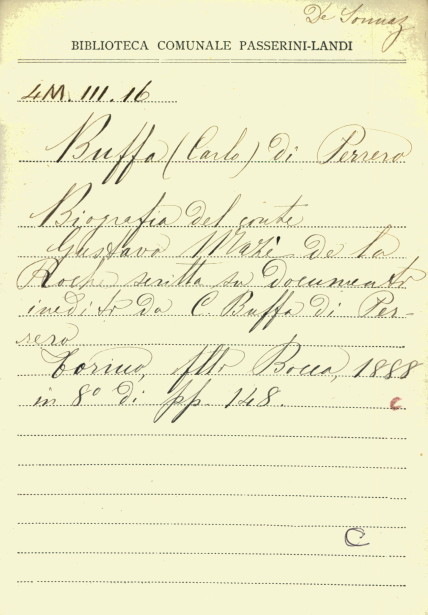 De Sonnaz
BIBLIOTECA COMUNALE PASSERINI-LANDI
4M. III. 16
Buffa (Carlo) di Perrero
Biografia del conte
Gustavo Mazè de la
Roche scritta su documenti
inediti da C. Buffa di Per-
rero
Torino, flli Bocca, 1888
in 8º di pp. 148.
C
C